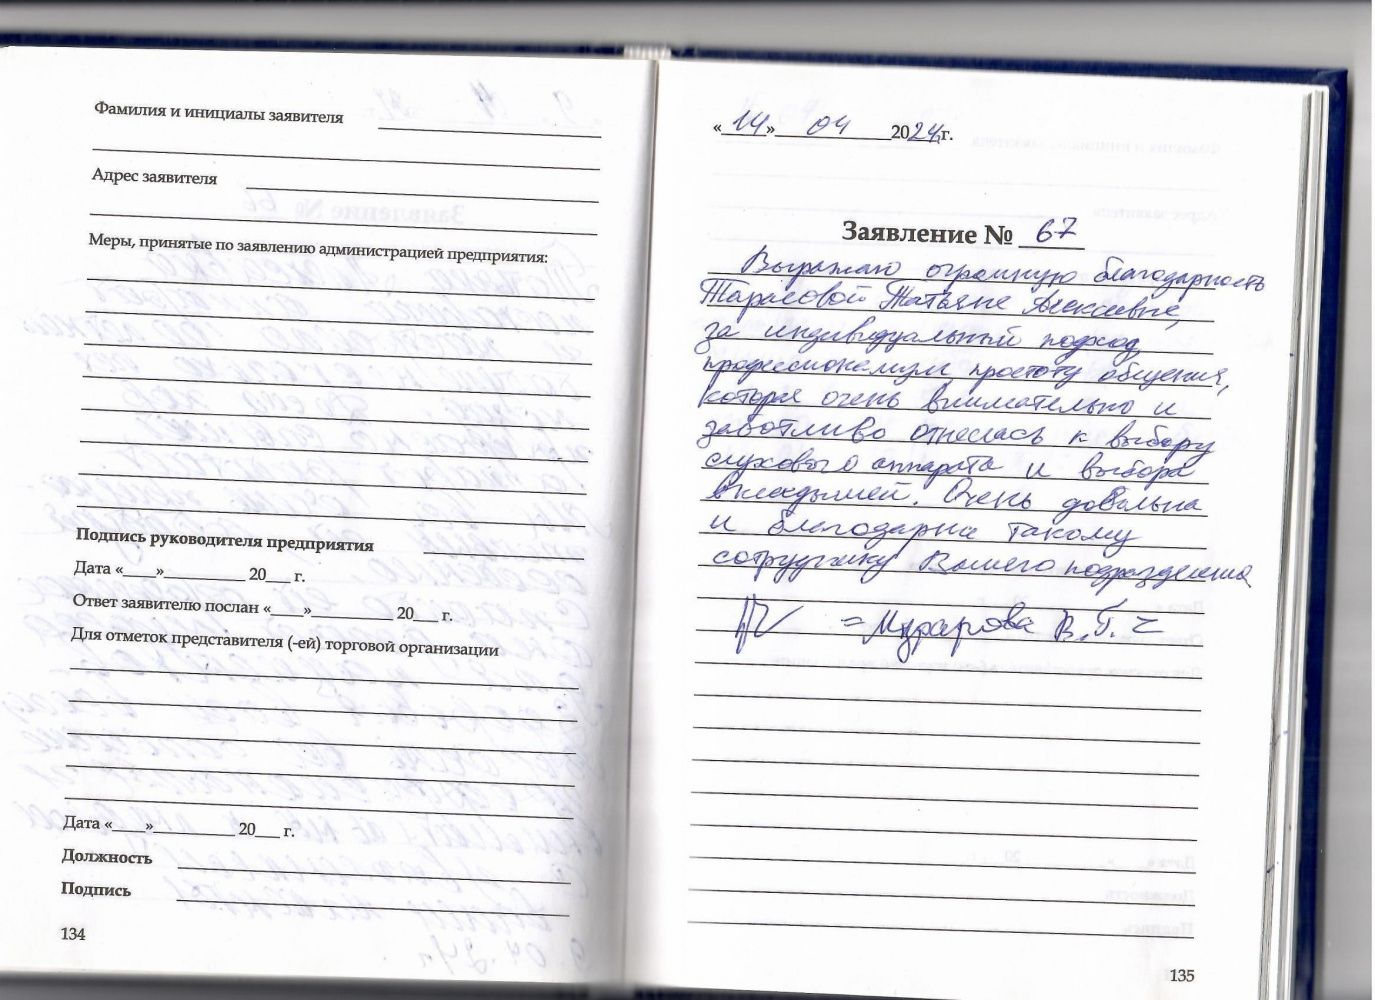 Фамилия и инициалы заявителя
Адрес заявителя
Меры, принятые по заявлению администрацией предприятия:
Подпись руководителя предприятия
Дата «____»__________ 20___ г.
Ответ заявителю послан «____»__________ 20___ г.
Для отметок представителя (-ей) торговой организации
Дата «____»__________ 20___ г.
Должность
Подпись
134
«14» 04 2024г.
Заявление № 67
Выражаю огромную благодарность
Тарасовой Татьяне Алексеевне,
за индивидуальный подход
профессионализм простоту общения,
которая очень внимательно и
заботливо отнеслась к выбору
слухового аппарата и выбора
вкладышей. Очень довольна
и благодарна такому
сотруднику Вашего подразделения
В.Г.
135